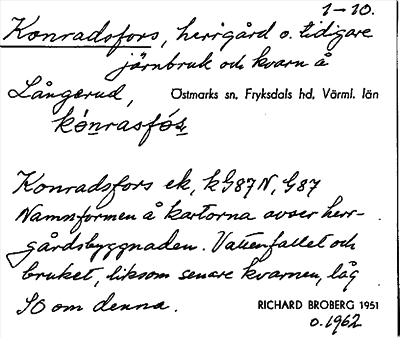 1-10.
Konradsfors, herrgård o. tidigare
järnbruk och kvarn å
Långerud, Östmarks sn, Fryksdals hd, Värml. län
kónrasfós
Konradsfors ek, kG87N, G87
Namnformen å kartorna avser herr-
gårdsbyggnaden. Vattenfallet och
bruket, liksom senare kvarnen, låg
SO om denna.
RICHARD BROBERG 1951
o. 1962